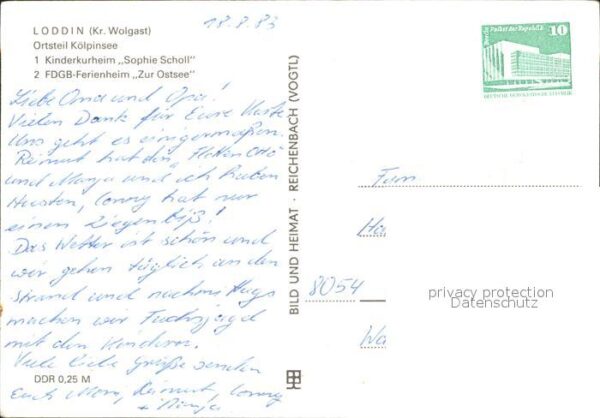 18.8.83
LODDIN (Kr. Wolgast)
Ortsteil Kölpinsee
1 Kinderkurheim „Sophie Scholl"
2 FDGB-Ferienheim „Zur Ostsee"
Liebe Oma und Opa!
Vielen Dank für Eure Karte
Uns geht es einigermaßen.
Reimut hat den „Flotten Otto"
und Manja und ich haben
Husten, Conny hat nur
einen Ziegenbiß!
Das Wetter ist schön und
wir gehen täglich an den
Strand und nachmittags
machen wir Fuchsjagd
mit den Kindern.
Viele liebe Grüße senden
Euch Mona, Reimut, Conny
+ Manja
DDR 0,25 M
BILD UND HEIMAT · REICHENBACH (VOGTL)
10
Berlin Palast der Republik
DEUTSCHE DEMOKRATISCHE REPUBLIK
Fam
Ha
8054
Wa
privacy protection
Datenschutz